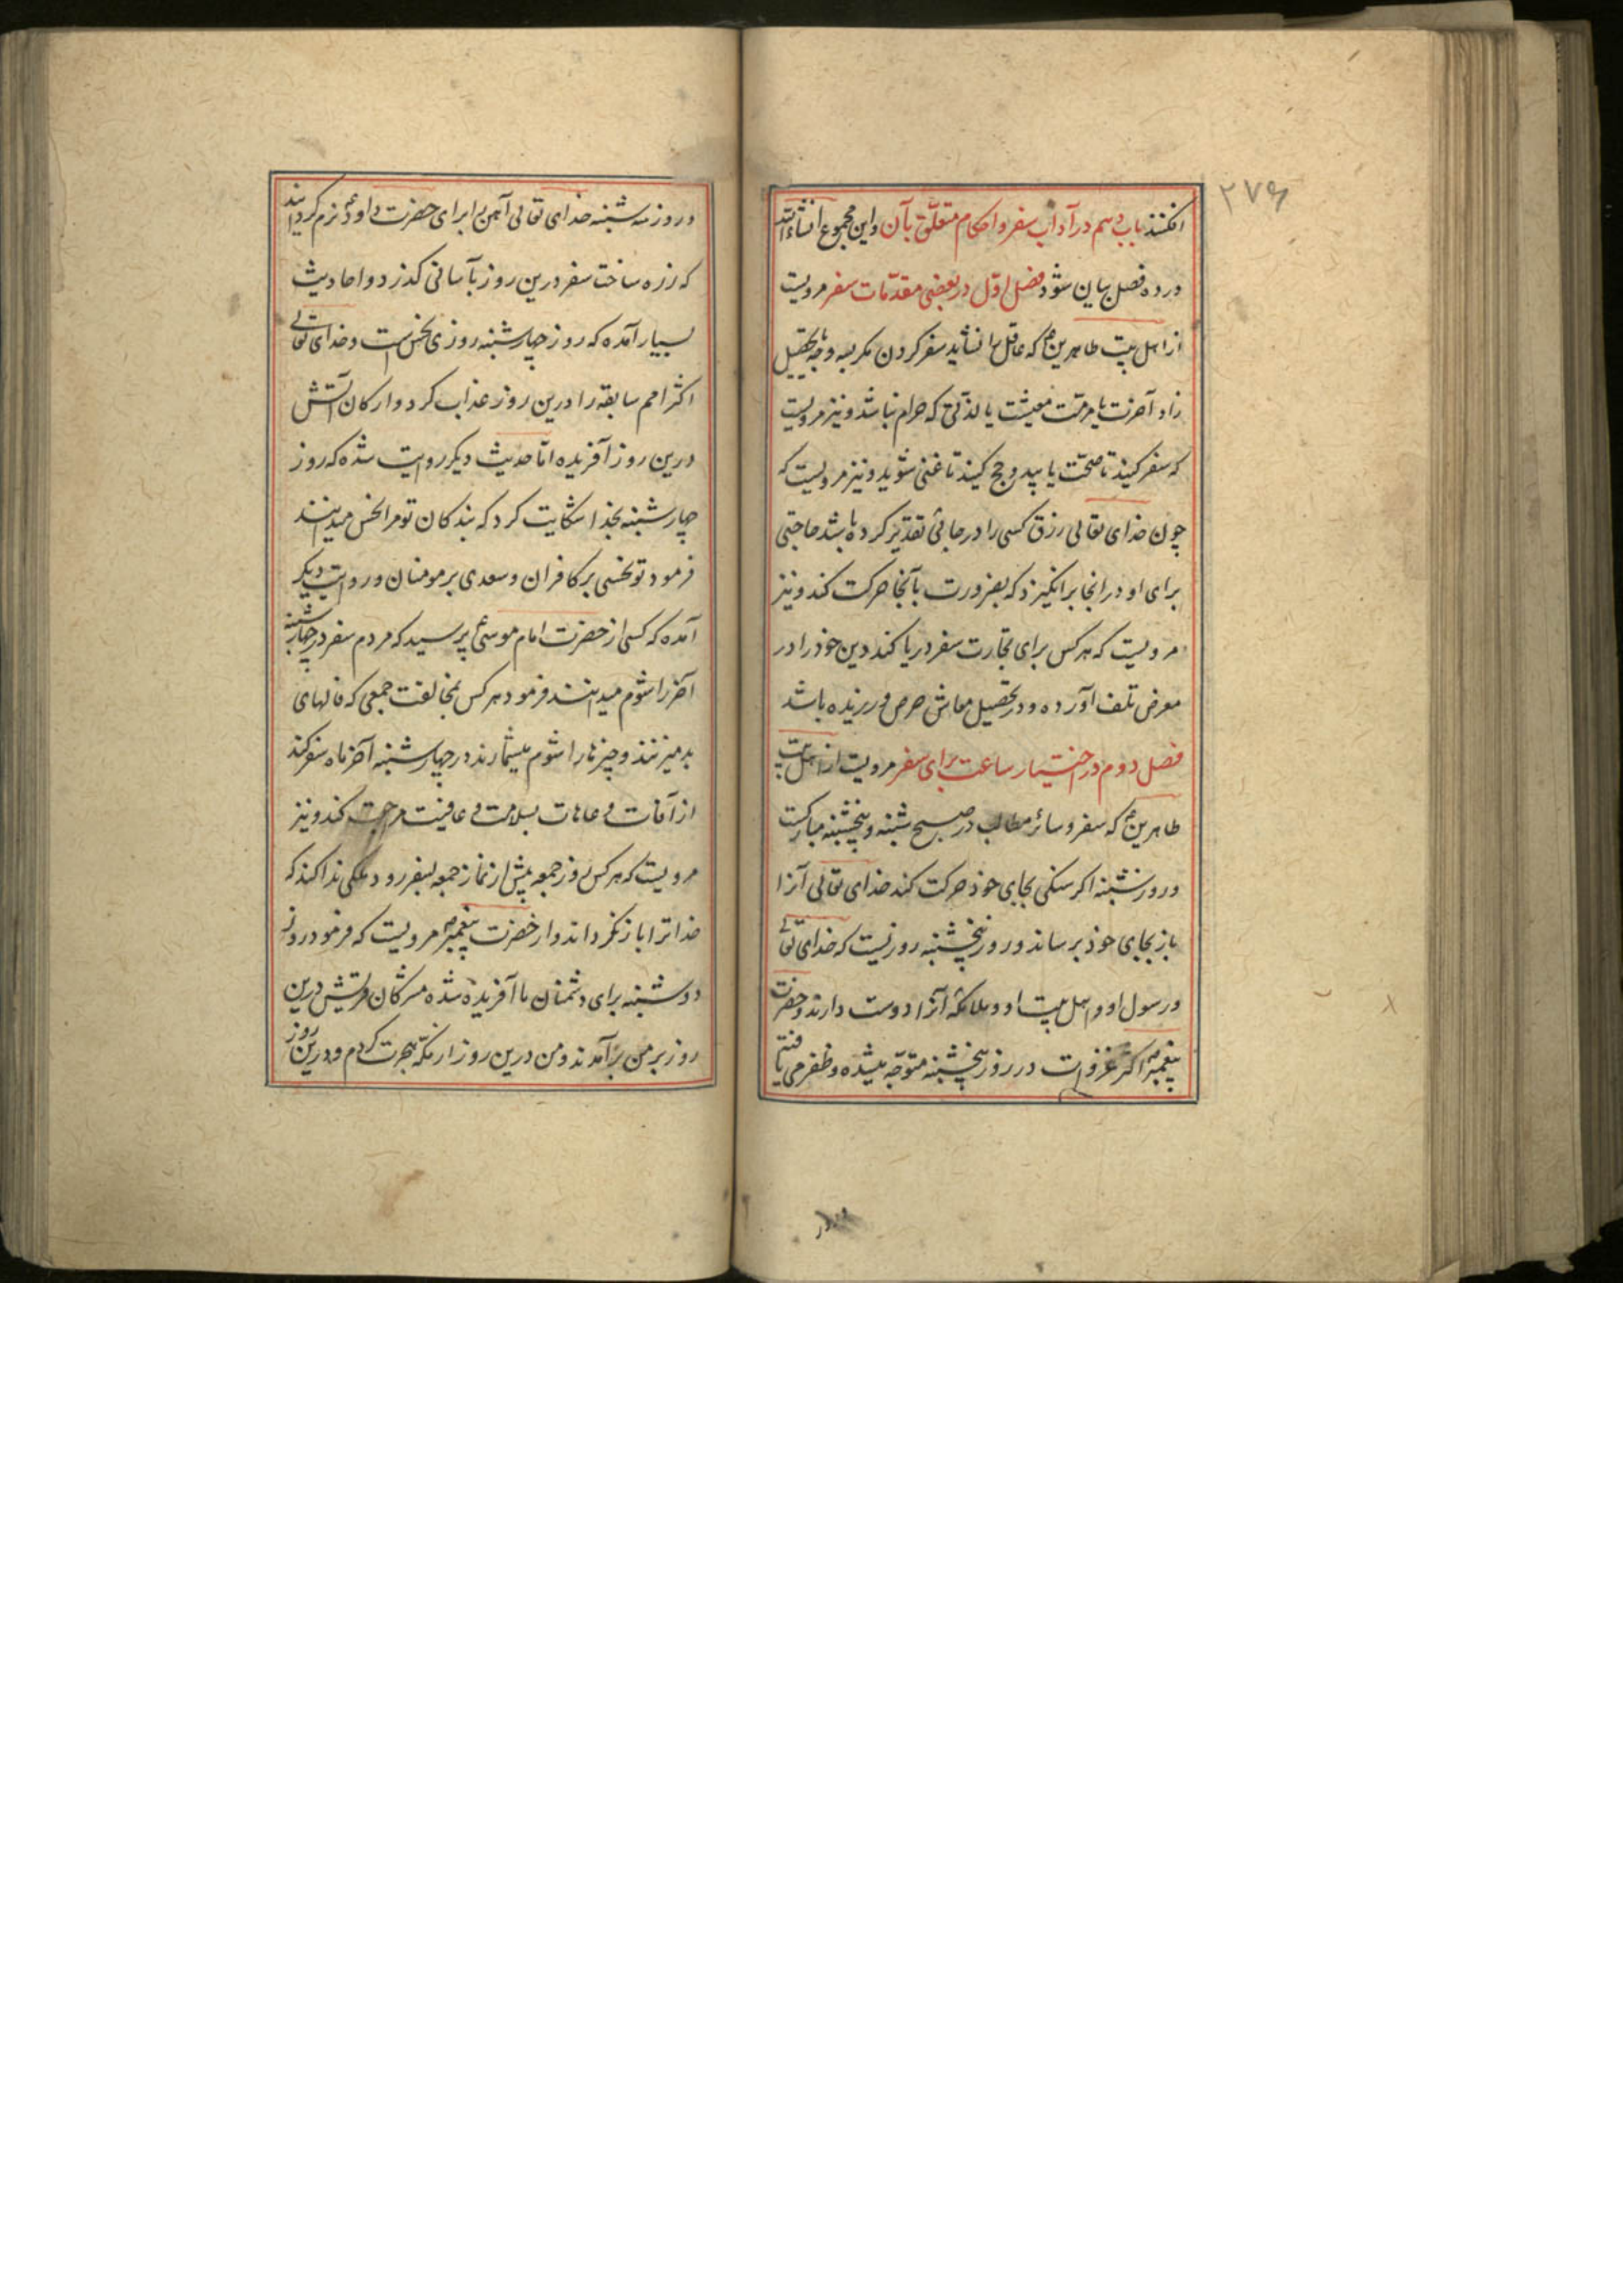 ۲۷۶
افکنند باب دهم در آداب سفر و احکام متعلّق بآن و این مجموع انشاءالله
در ده فصل بیان شود فصل اوّل در بعضی مقدّمات سفر مرویست
از اهل بیت طاهرین که عاقل را نشاید سفر کردن مگر بسه وجه تحصیل
زاد آخرت یا مرمّت معیشت یا لذّتی که حرام نباشد و نیز مرویست
که سفر کنید تا صحّت یابید و حج کنید تا غنی شوید و نیز مرویست که
چون خدای تعالی رزق کسی را در جائی تقدیر کرده باشد حاجتی
برای او در انجا برانگیزد که بضرورت بآنجا حرکت کند و نیز
مرویست که هر کس برای تجارت سفر دریا کند دین خود را در
معرض تلف آورده و در تحصیل معاش حرص ورزیده باشد
فصل دوم در اختیار ساعت برای سفر مرویست از اهل بیت
طاهرین که سفر و سائر مطالب در صبح شنبه و پنجشنبه مبارکست
و روز شنبه اکر سنکی بجای خود حرکت کند خدای تعالی آنرا
باز بجای خود برساند و روز پنجشنبه روزیست که خدای تعالی
و رسول او و اهل بیت او و ملائکه آنرا دوست دارند و حضرت
پیغمبر اکثر غزوات در روز پنجشنبه متوجّه میشده و ظفر می یافته
و روز سه شنبه خدای تعالی آهن را برای حضرت داود نرم کردانید
که زره ساخت سفر درین روز بآسانی کذرد و احادیث
بسیار آمده که روز چهارشنبه روزی نحس است و خدای تعالی
اکثر امم سابقه را درین روز عذاب کرد و ارکان آتش
درین روز آفریده امّا حدیث دیکر روایت شده که روز
چهارشنبه بخدا شکایت کرد که بندکان تو مرا نحس میدانند
فرمود تو نحسی بر کافران و سعدی بر مومنان و روایت دیکر
آمده که کسی از حضرت امام موسی پرسید که مردم سفر در چهارشنبه
آخر را شوم میدانند فرمود هر کس بمخالفت جمعی که فالهای
بد میزنند و چیزها را شوم میشمارند در چهارشنبه آخر ماه سفر کند
از آفات و عاهات بسلامت و عافیت مراجعت کند و نیز
مرویست که هر کس روز جمعه پیش از نماز جمعه بسفر رود ملکی ندا کند که
خدا ترا باز نکرداند و از حضرت پیغمبر مرویست که فرمود روز
دوشنبه برای دشمنان ما آفریده شده مشرکان قریش درین
روز بر من برآمدند و من درین روز از مکّه هجرت کردم و درین روز